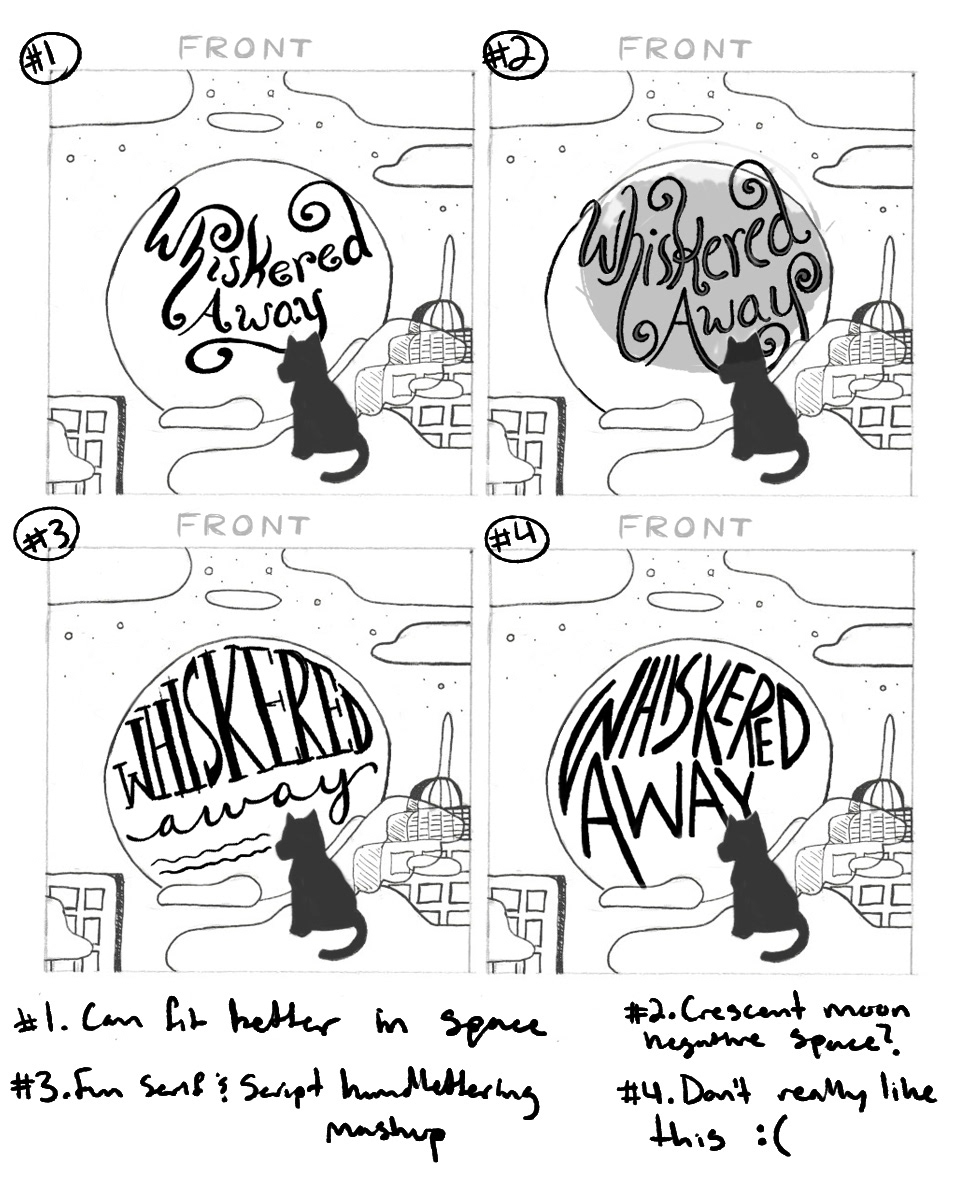 #1
FRONT
Whiskered
Away
#2
FRONT
Whiskered
Away
#3
FRONT
WHISKERED
away
#4
FRONT
WHISKERED
AWAY
#1. Can fit better in space
#2. Crescent moon
negative space?
#3. Fun serif & Script handlettering
mashup
#4. Don't really like
this :(